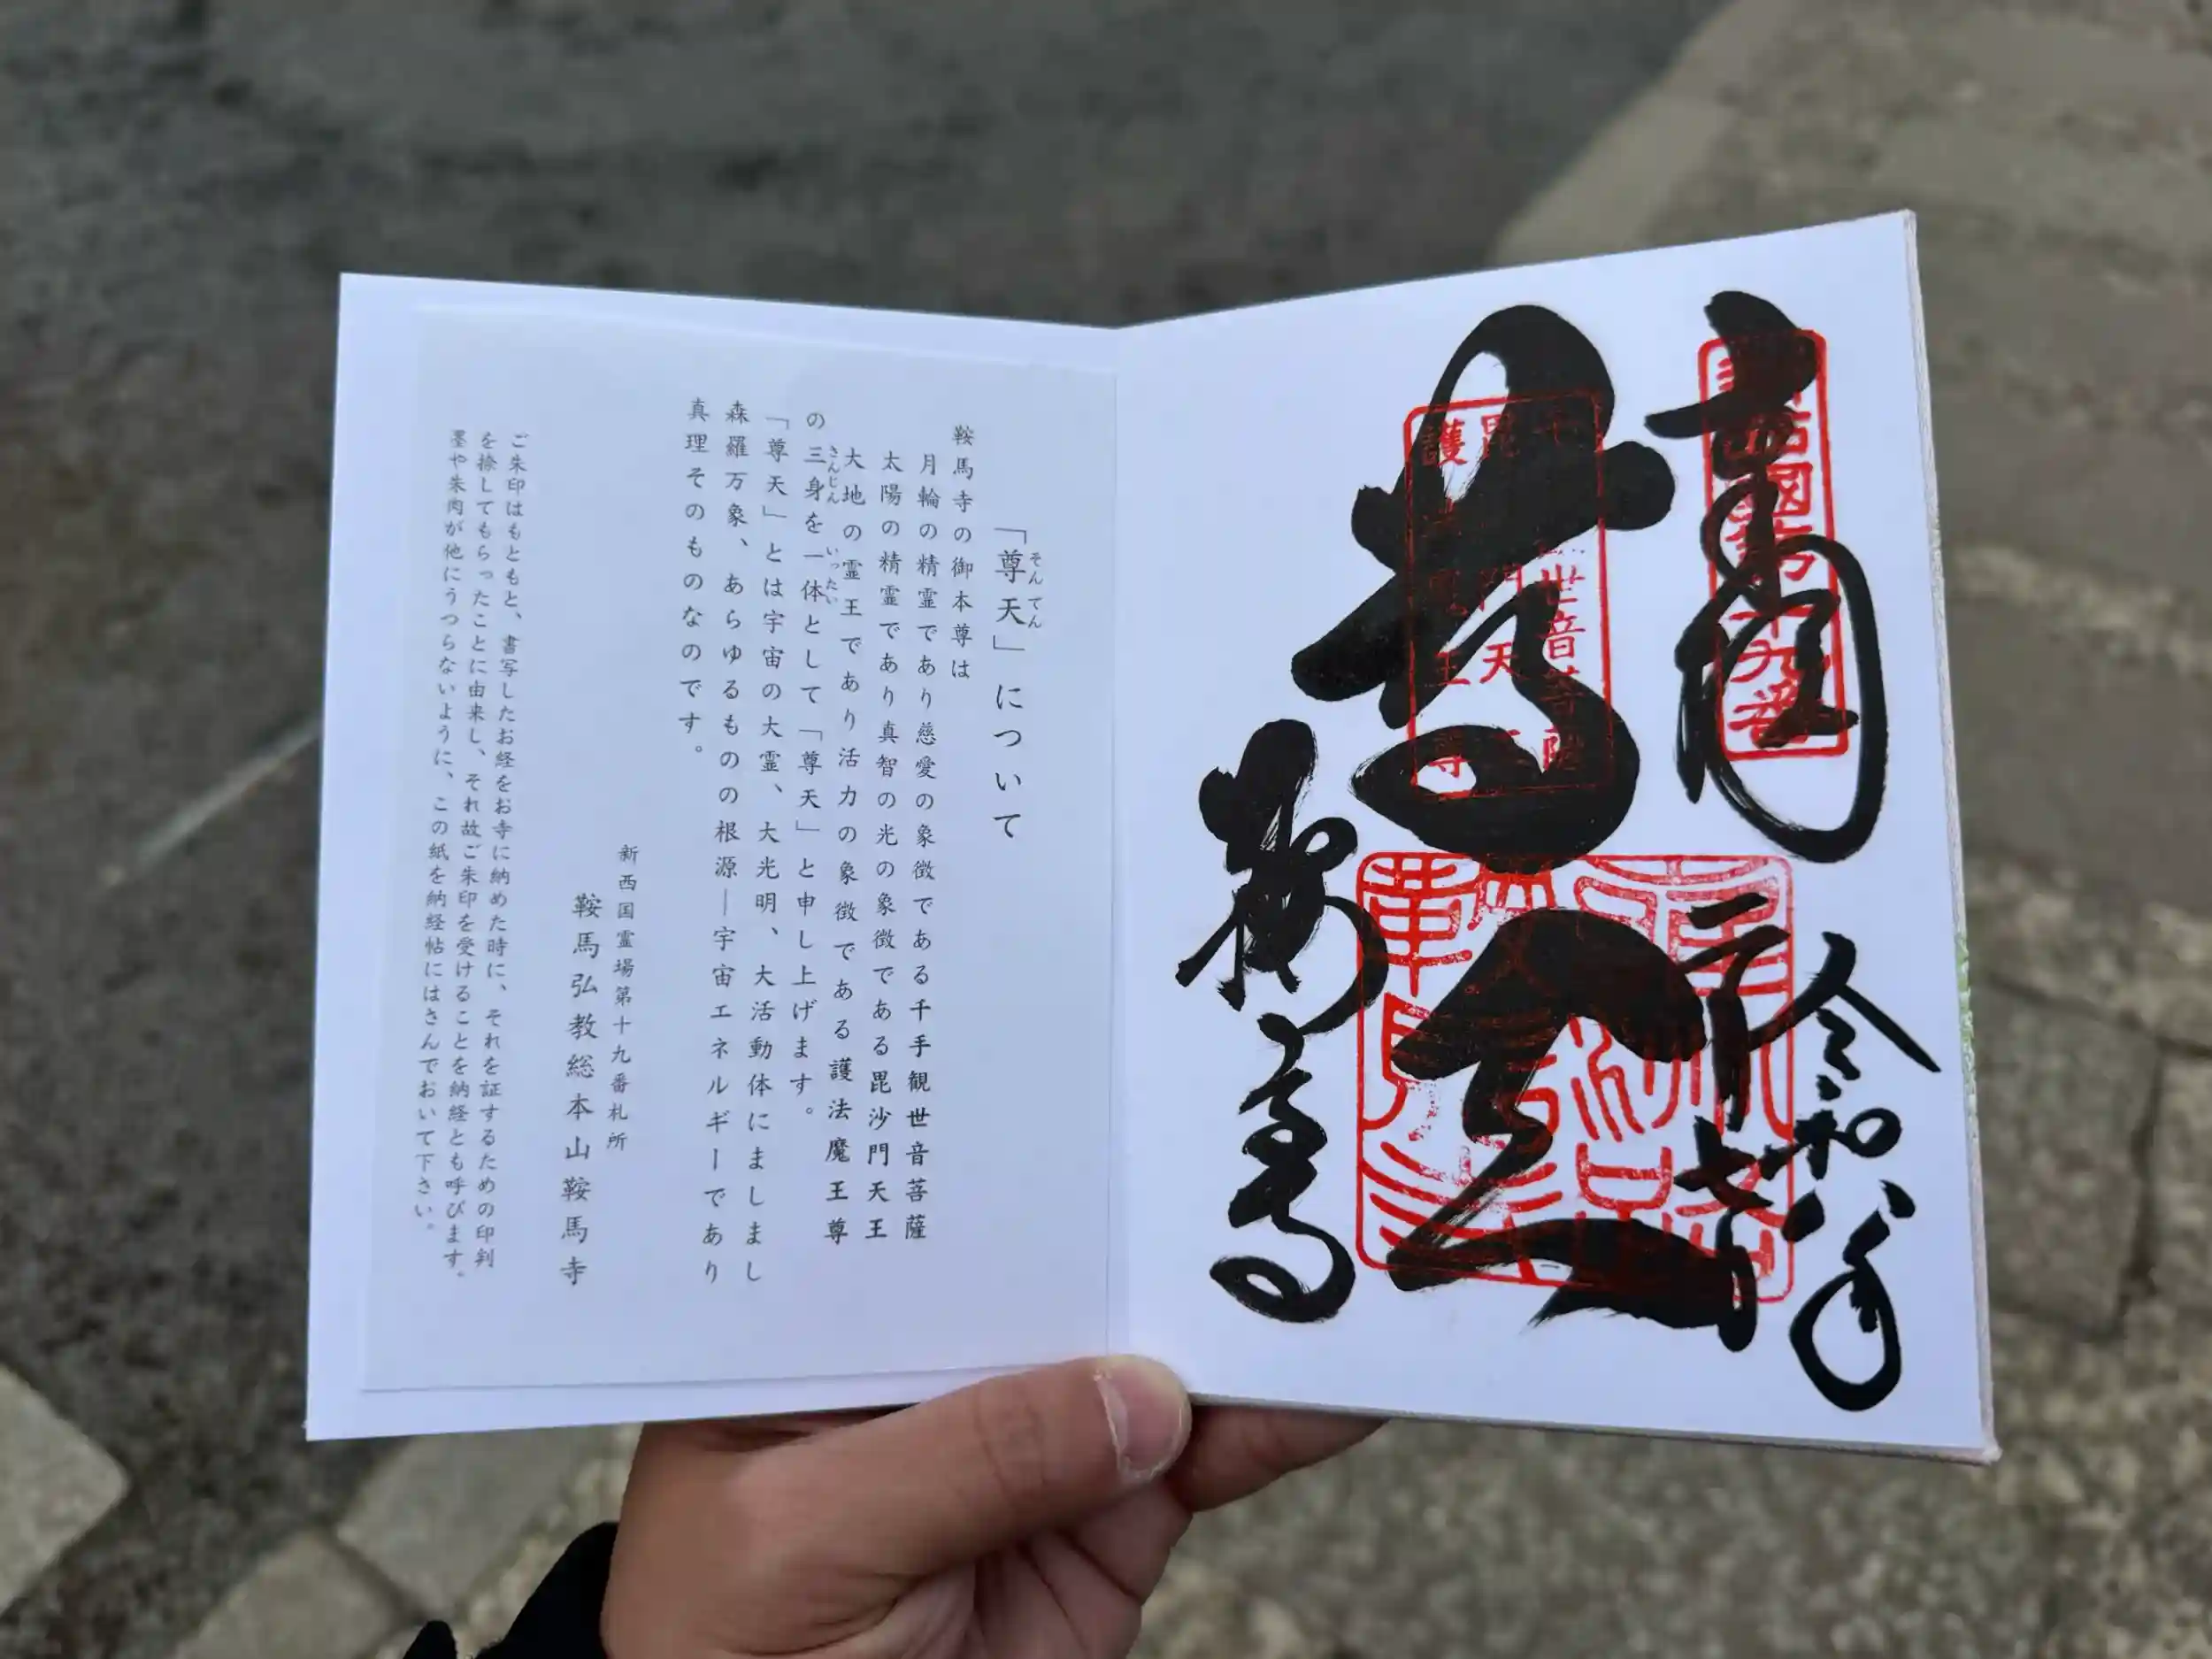 奉拝
令和八年
二月七日
尊天
鞍馬寺
「尊天」について
そんてん
鞍馬寺の御本尊は
月輪の精霊であり慈愛の象徴である千手観世音菩薩
太陽の精霊であり真智の光の象徴である毘沙門天王
大地の霊王であり活力の象徴である護法魔王尊
の三身を一体として「尊天」と申し上げます。
さんじん いったい
「尊天」とは宇宙の大霊、大光明、大活動体にましまし
森羅万象、あらゆるものの根源―宇宙エネルギーであり
真理そのものなのです。
新西国霊場第十九番札所
鞍馬弘教総本山鞍馬寺
ご朱印はもともと、書写したお経をお寺に納めた時に、それを証するための印判
を捺してもらったことに由来し、それ故ご朱印を受けることを納経とも呼びます。
墨や朱肉が他にうつらないように、この紙を納経帖にはさんでおいて下さい。